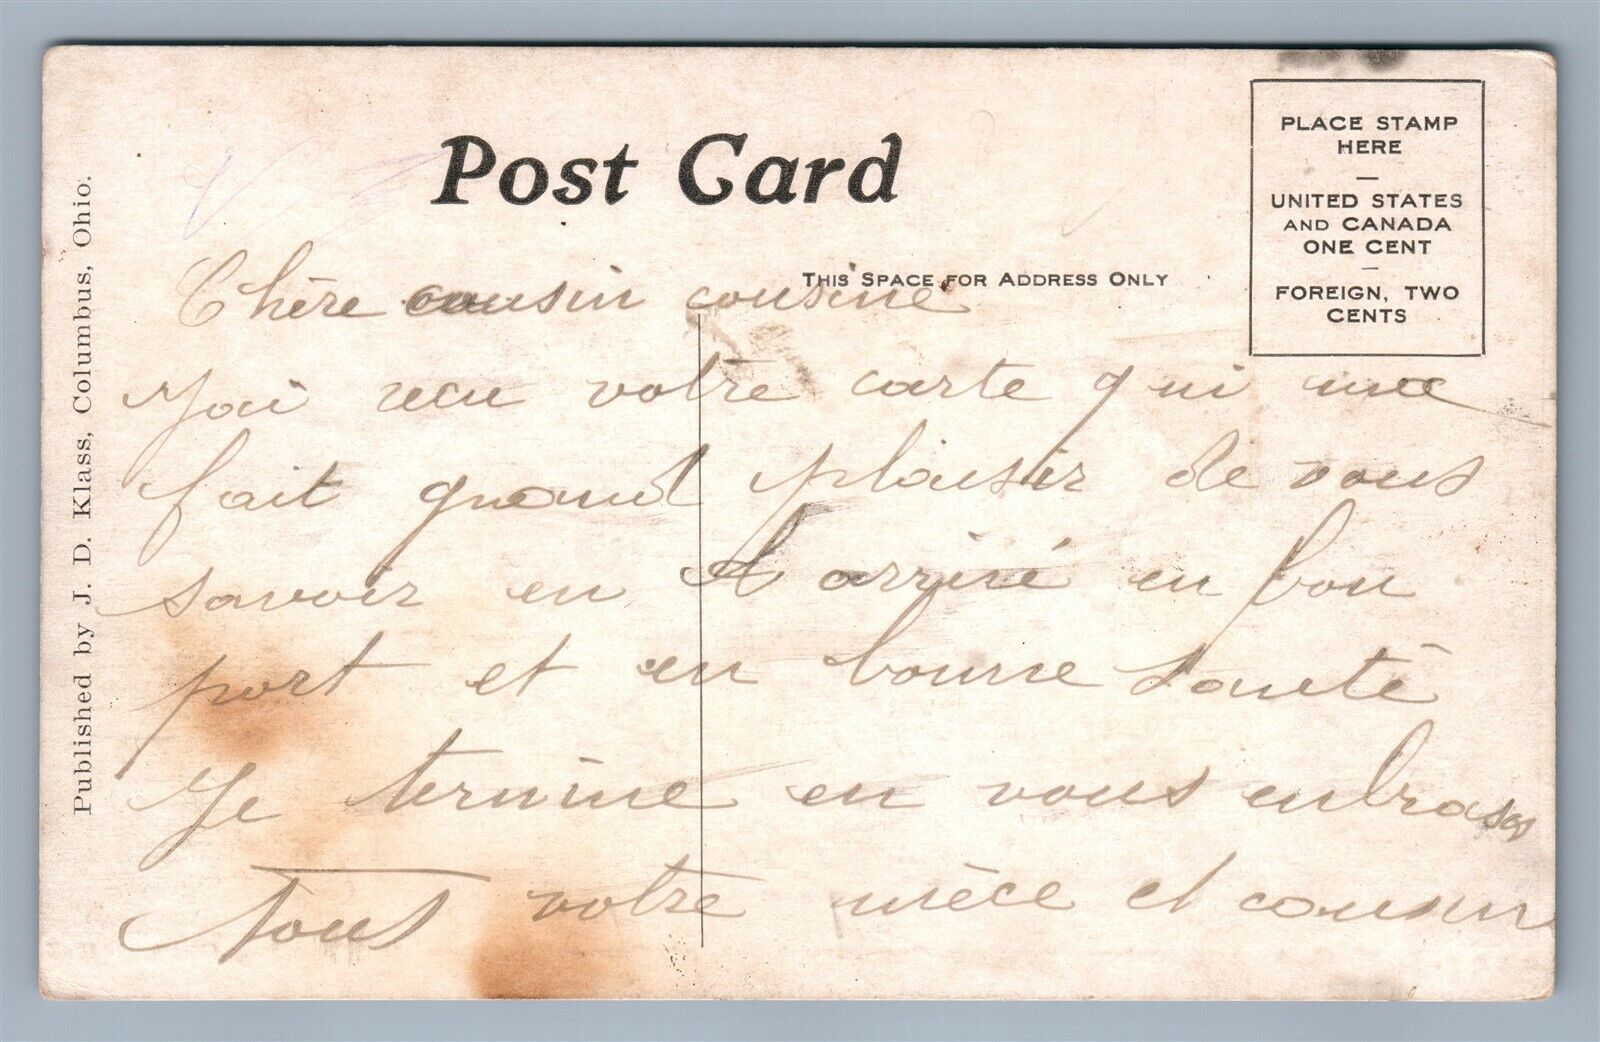 Post Card
THIS SPACE FOR ADDRESS ONLY
PLACE STAMP
HERE
UNITED STATES
AND CANADA
ONE CENT
FOREIGN, TWO
CENTS
Published by J. D. Klass, Columbus, Ohio.
Chère cousin cousine
J'ai recu votre carte qui me
fait grand plaisir de vous
savoir en arrivé en bon
port et en bonne santé
Je termine en vous enbrasas
Tous votre nièce et cousin